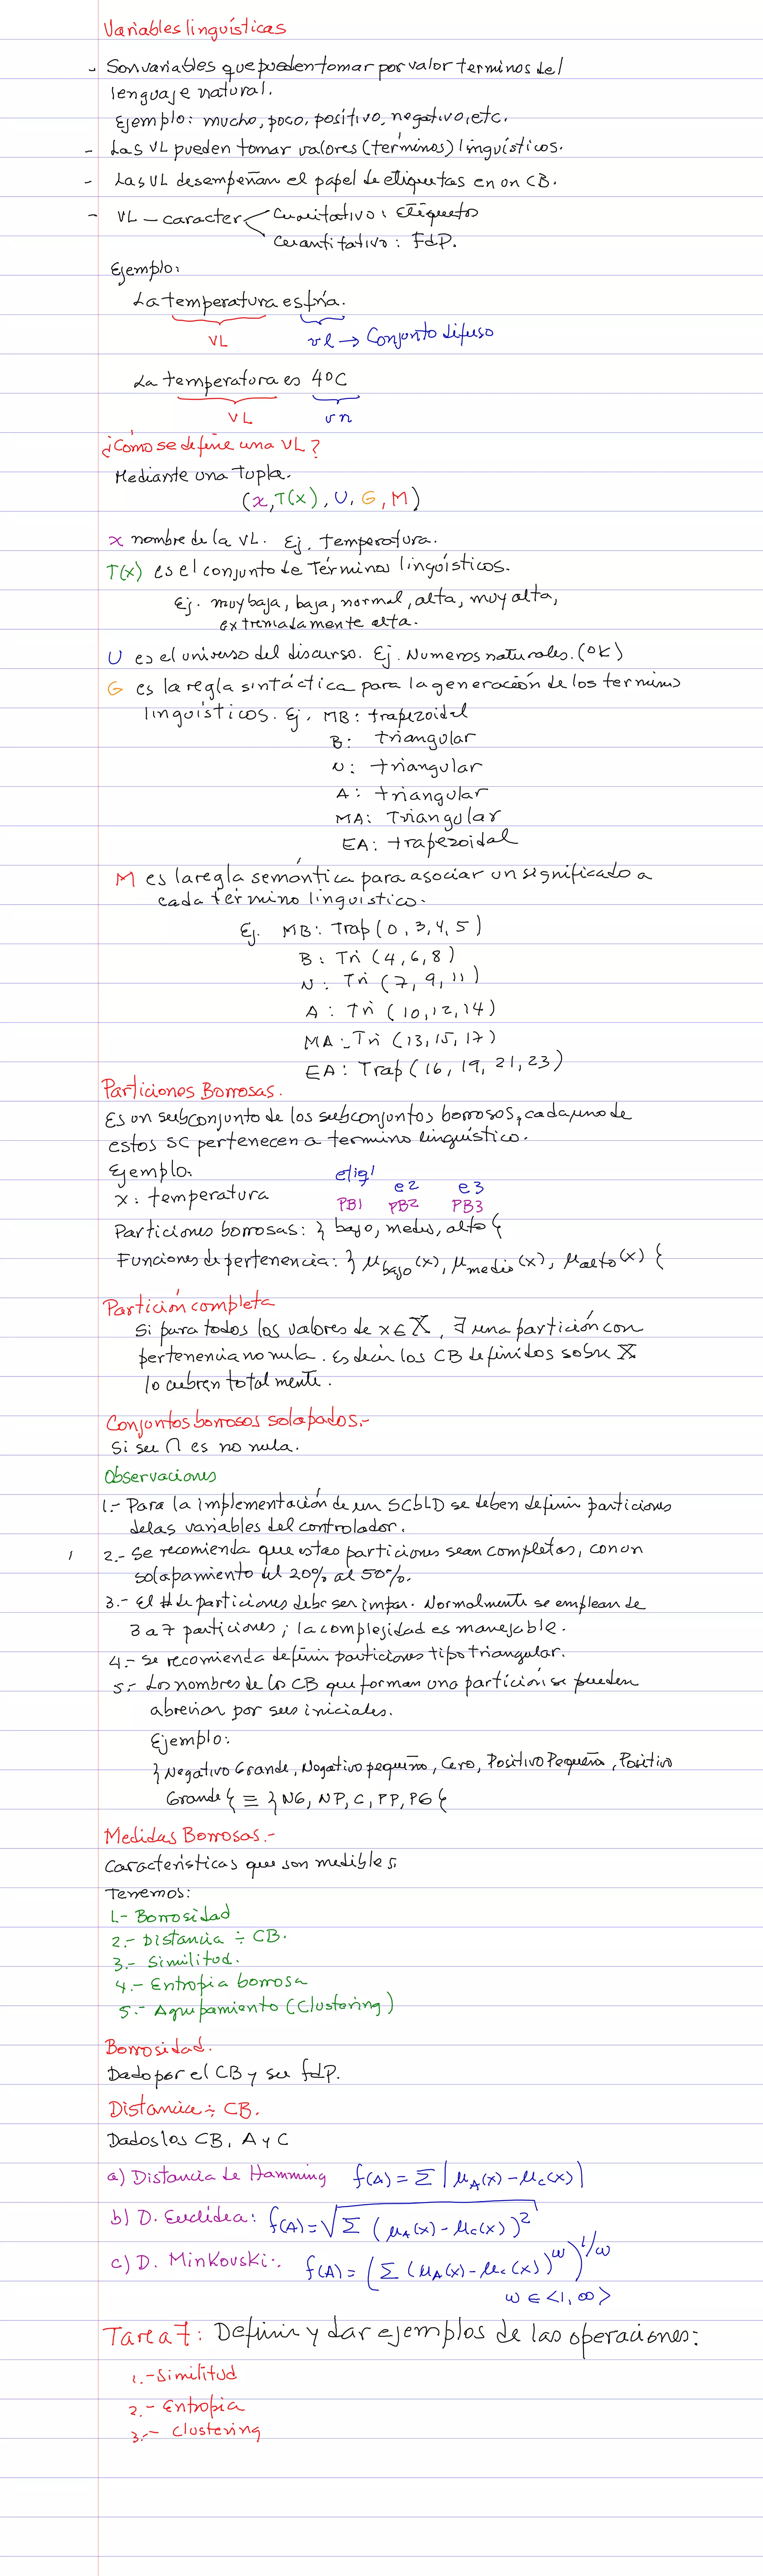 Variables linguísticas
- Son variables que pueden tomar por valor terminos del
lenguaje natural.
Ejemplo: mucho, poco, positivo, negativo, etc.
- Las VL pueden tomar valores (términos) linguísticos.
- Las VL desempeñan el papel de etiquetas en on CB.
- VL - caracter < Cualitativo: Etiquetas
Cuantitativo: FdP.
Ejemplo:
La temperatura es fría.
VL vl → Conjunto difuso
La temperatura es 4°C
VL vn
¿Cómo se define una VL?
Mediante una tupla.
(x, T(x), U, G, M)
x nombre de la VL. Ej. temperatura.
T(x) es el conjunto de Términos linguísticos.
Ej. muy baja, baja, normal, alta, muy alta,
extremadamente alta.
U es el universo del discurso. Ej. Numeros naturales. (°K)
G es la regla sintáctica para la generación de los terminos
linguísticos. Ej. MB: trapezoidal
B: triangular
N: triangular
A: triangular
MA: Triangular
EA: trapezoidal
M es la regla semántica para asociar un significado a
cada término linguistico.
Ej. MB: Trap (0, 3, 4, 5)
B: Tri (4, 6, 8)
N: Tri (7, 9, 11)
A: Tri (10, 12, 14)
MA: Tri (13, 15, 17)
EA: Trap (16, 19, 21, 23)
Particiones Borrosas.
Es un subconjunto de los subconjuntos borrosos, cada uno de
estos SC pertenecen a termino linguístico.
Ejemplo: etiq1 e2 e3
x: temperatura PB1 PB2 PB3
Particiones borrosas: } bajo, medio, alto {
Funciones de pertenencia: } μbajo(x), μmedio(x), μalto(x) {
Partición completa
Si para todos los valores de x ∈ X, ∃ una partición con
pertenencia no nula. Es decir los CB definidos sobre X
lo cubren totalmente.
Conjuntos borrosos solapados.-
Si su ∩ es no nula.
Observaciones
1.- Para la implementación de un SCbLD se deben definir particiones
de las variables del controlador.
2.- Se recomienda que estas particiones sean completas, con un
solapamiento del 20% al 50%.
3.- El # de particiones debe ser impar. Normalmente se emplean de
3 a 7 particiones; la complejidad es manejable.
4.- Se recomienda definir particiones tipo triangular.
5.- Los nombres de los CB que forman una partición se pueden
abreviar por sus iniciales.
Ejemplo:
} Negativo Grande, Negativo pequeño, Cero, Positivo Pequeño, Positivo
Grande { ≡ } NG, NP, C, PP, PG {
Medidas Borrosas.-
Características que son medibles.
Tenemos:
1.- Borrosidad
2.- Distancia ÷ CB.
3.- Similitud.
4.- Entropia borrosa
5.- Agrupamiento (Clustering)
Borrosidad.
Dado por el CB y su fdP.
Distancia ÷ CB.
Dados los CB, A y C
a) Distancia de Hamming f(A) = Σ |μA(x) - μC(x)|
b) D. Euclídea: f(A) = √Σ (μA(x) - μC(x))²
c) D. Minkouski: f(A) = (Σ (μA(x) - μC(x))^w)^1/w
w ∈ <1, ∞>
Tarea 7: Definir y dar ejemplos de las operaciones:
1.- Similitud
2.- Entropia
3.- Clustering